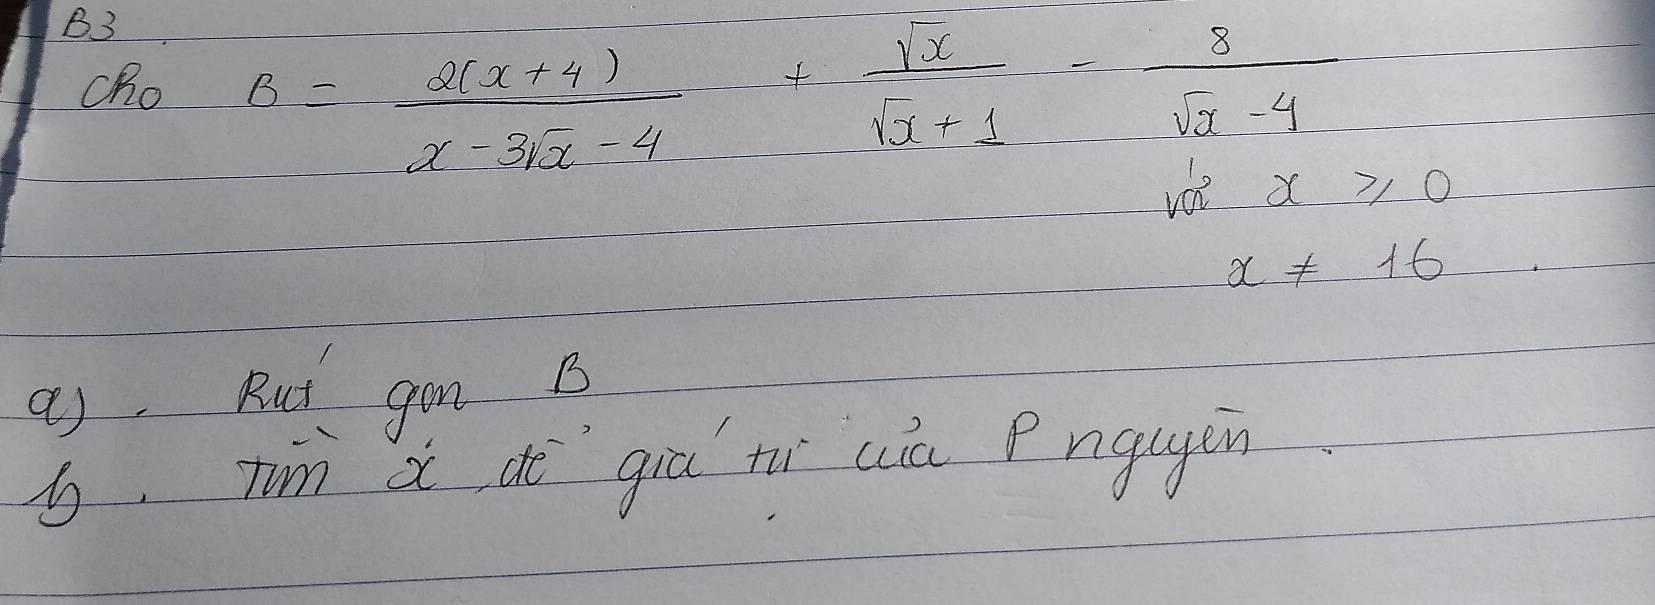 B3.
Cho B = 2(x+4) / (x - 3√x - 4) + √x / (√x + 1) - 8 / (√x - 4)
với x ⩾ 0
x ≠ 16.
a). Rút gọn B
b. Tìm x để giá trị của P nguyên.